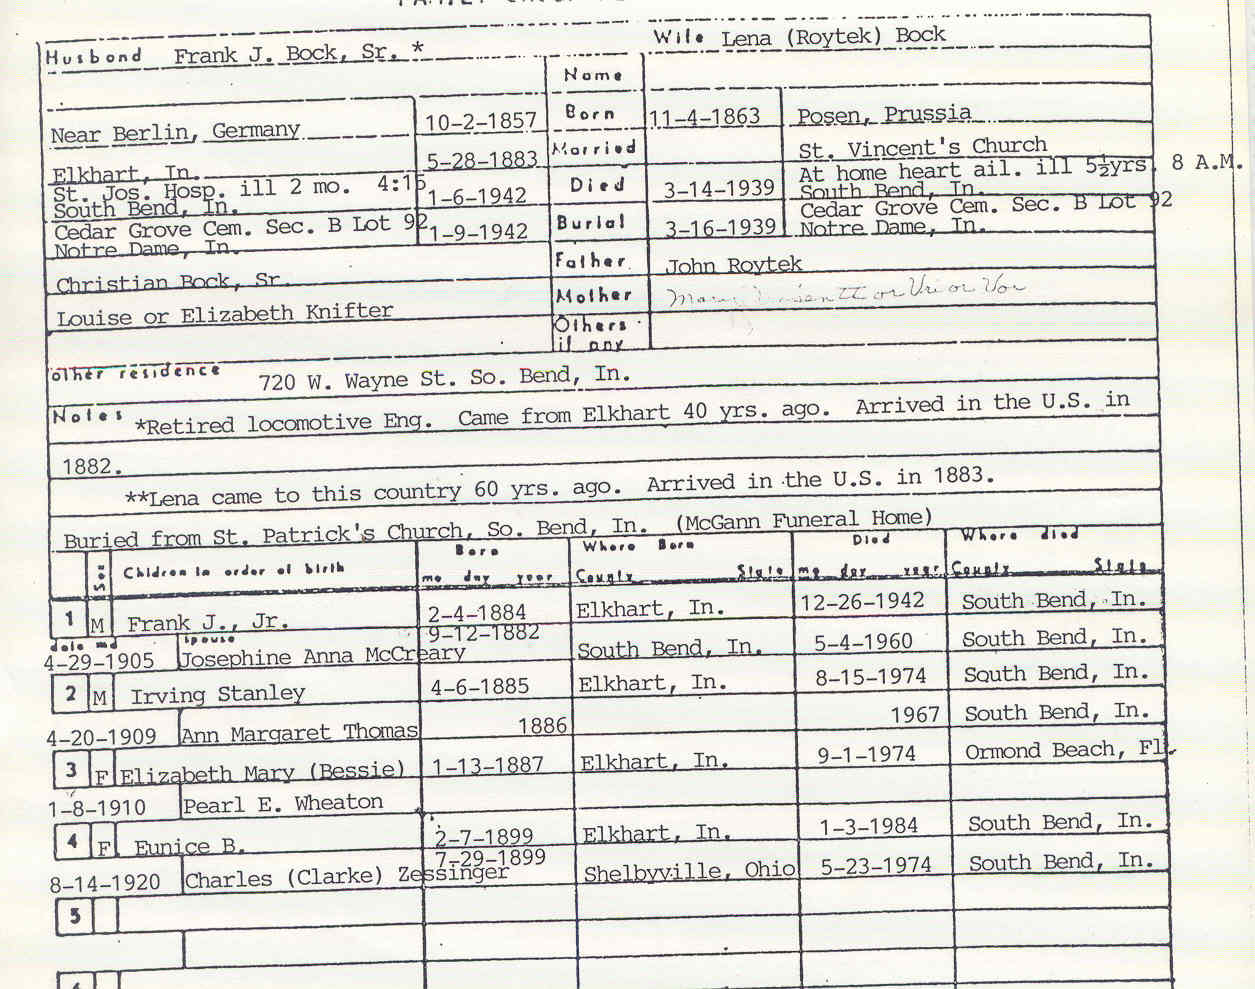 Husband Frank J. Bock, Sr. * Wife Lena (Roytek) Bock
Name
Near Berlin, Germany 10-2-1857 Born 11-4-1863 Posen, Prussia
Elkhart, In. 5-28-1883 Married St. Vincent's Church
St. Jos. Hosp. ill 2 mo. 4:15 At home heart ail. ill 5½yrs. 8 A.M.
South Bend, In. 1-6-1942 Died 3-14-1939 South Bend, In.
Cedar Grove Cem. Sec. B Lot 92 Cedar Grove Cem. Sec. B Lot 92
Notre Dame, In. 1-9-1942 Burial 3-16-1939 Notre Dame, In.
Christian Bock, Sr. Father John Roytek
Louise or Elizabeth Knifter Mother Mary or Uri or Vor
Others
if any
other residence 720 W. Wayne St. So. Bend, In.
Notes *Retired locomotive Eng. Came from Elkhart 40 yrs. ago. Arrived in the U.S. in
1882.
**Lena came to this country 60 yrs. ago. Arrived in the U.S. in 1883.
Buried from St. Patrick's Church, So. Bend, In. (McGann Funeral Home)
Sex Chidren in order of birth Born Where Born Died Where died
mo day year County State mo day year County State
1 M Frank J., Jr. 2-4-1884 Elkhart, In. 12-26-1942 South Bend, In.
date md spouse
4-29-1905 Josephine Anna McCreary 9-12-1882 South Bend, In. 5-4-1960 South Bend, In.
2 M Irving Stanley 4-6-1885 Elkhart, In. 8-15-1974 South Bend, In.
4-20-1909 Ann Margaret Thomas 1886 1967 South Bend, In.
3 F Elizabeth Mary (Bessie) 1-13-1887 Elkhart, In. 9-1-1974 Ormond Beach, Fl.
1-8-1910 Pearl E. Wheaton
4 F Eunice B. 2-7-1899 Elkhart, In. 1-3-1984 South Bend, In.
8-14-1920 Charles (Clarke) Zessinger 7-29-1899 Shelbyville, Ohio 5-23-1974 South Bend, In.
5